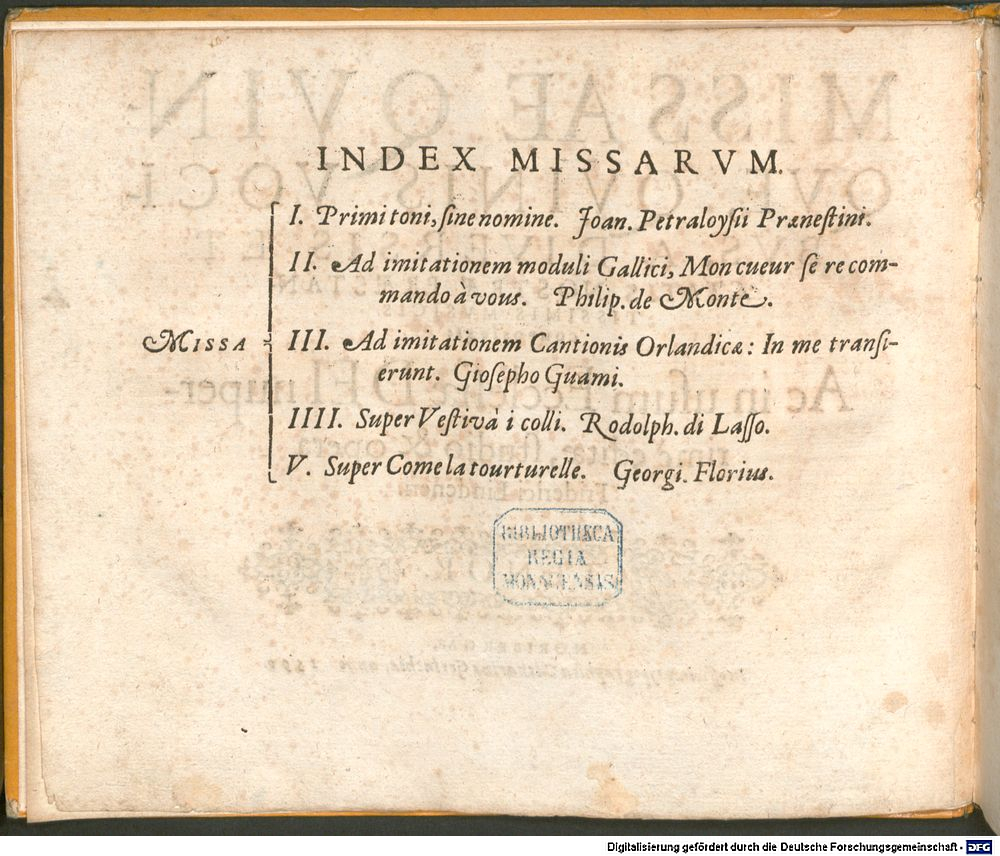 INDEX MISSARVM.
I. Primi toni, sine nomine. Joan. Petraloysii Prænestini.
II. Ad imitationem moduli Gallici, Mon cueur se recom-
mando à vous. Philip. de Monte.
MISSA
III. Ad imitationem Cantionis Orlandicæ: In me transi-
erunt. Giosepho Guami.
IIII. Super Vestivà i colli. Rodolph. di Lasso.
V. Super Come la tourturelle. Georgi. Florius.
BIBLIOTHECA
REGIA
MONACENSIS
Digitalisierung gefördert durch die Deutsche Forschungsgemeinschaft - DFG